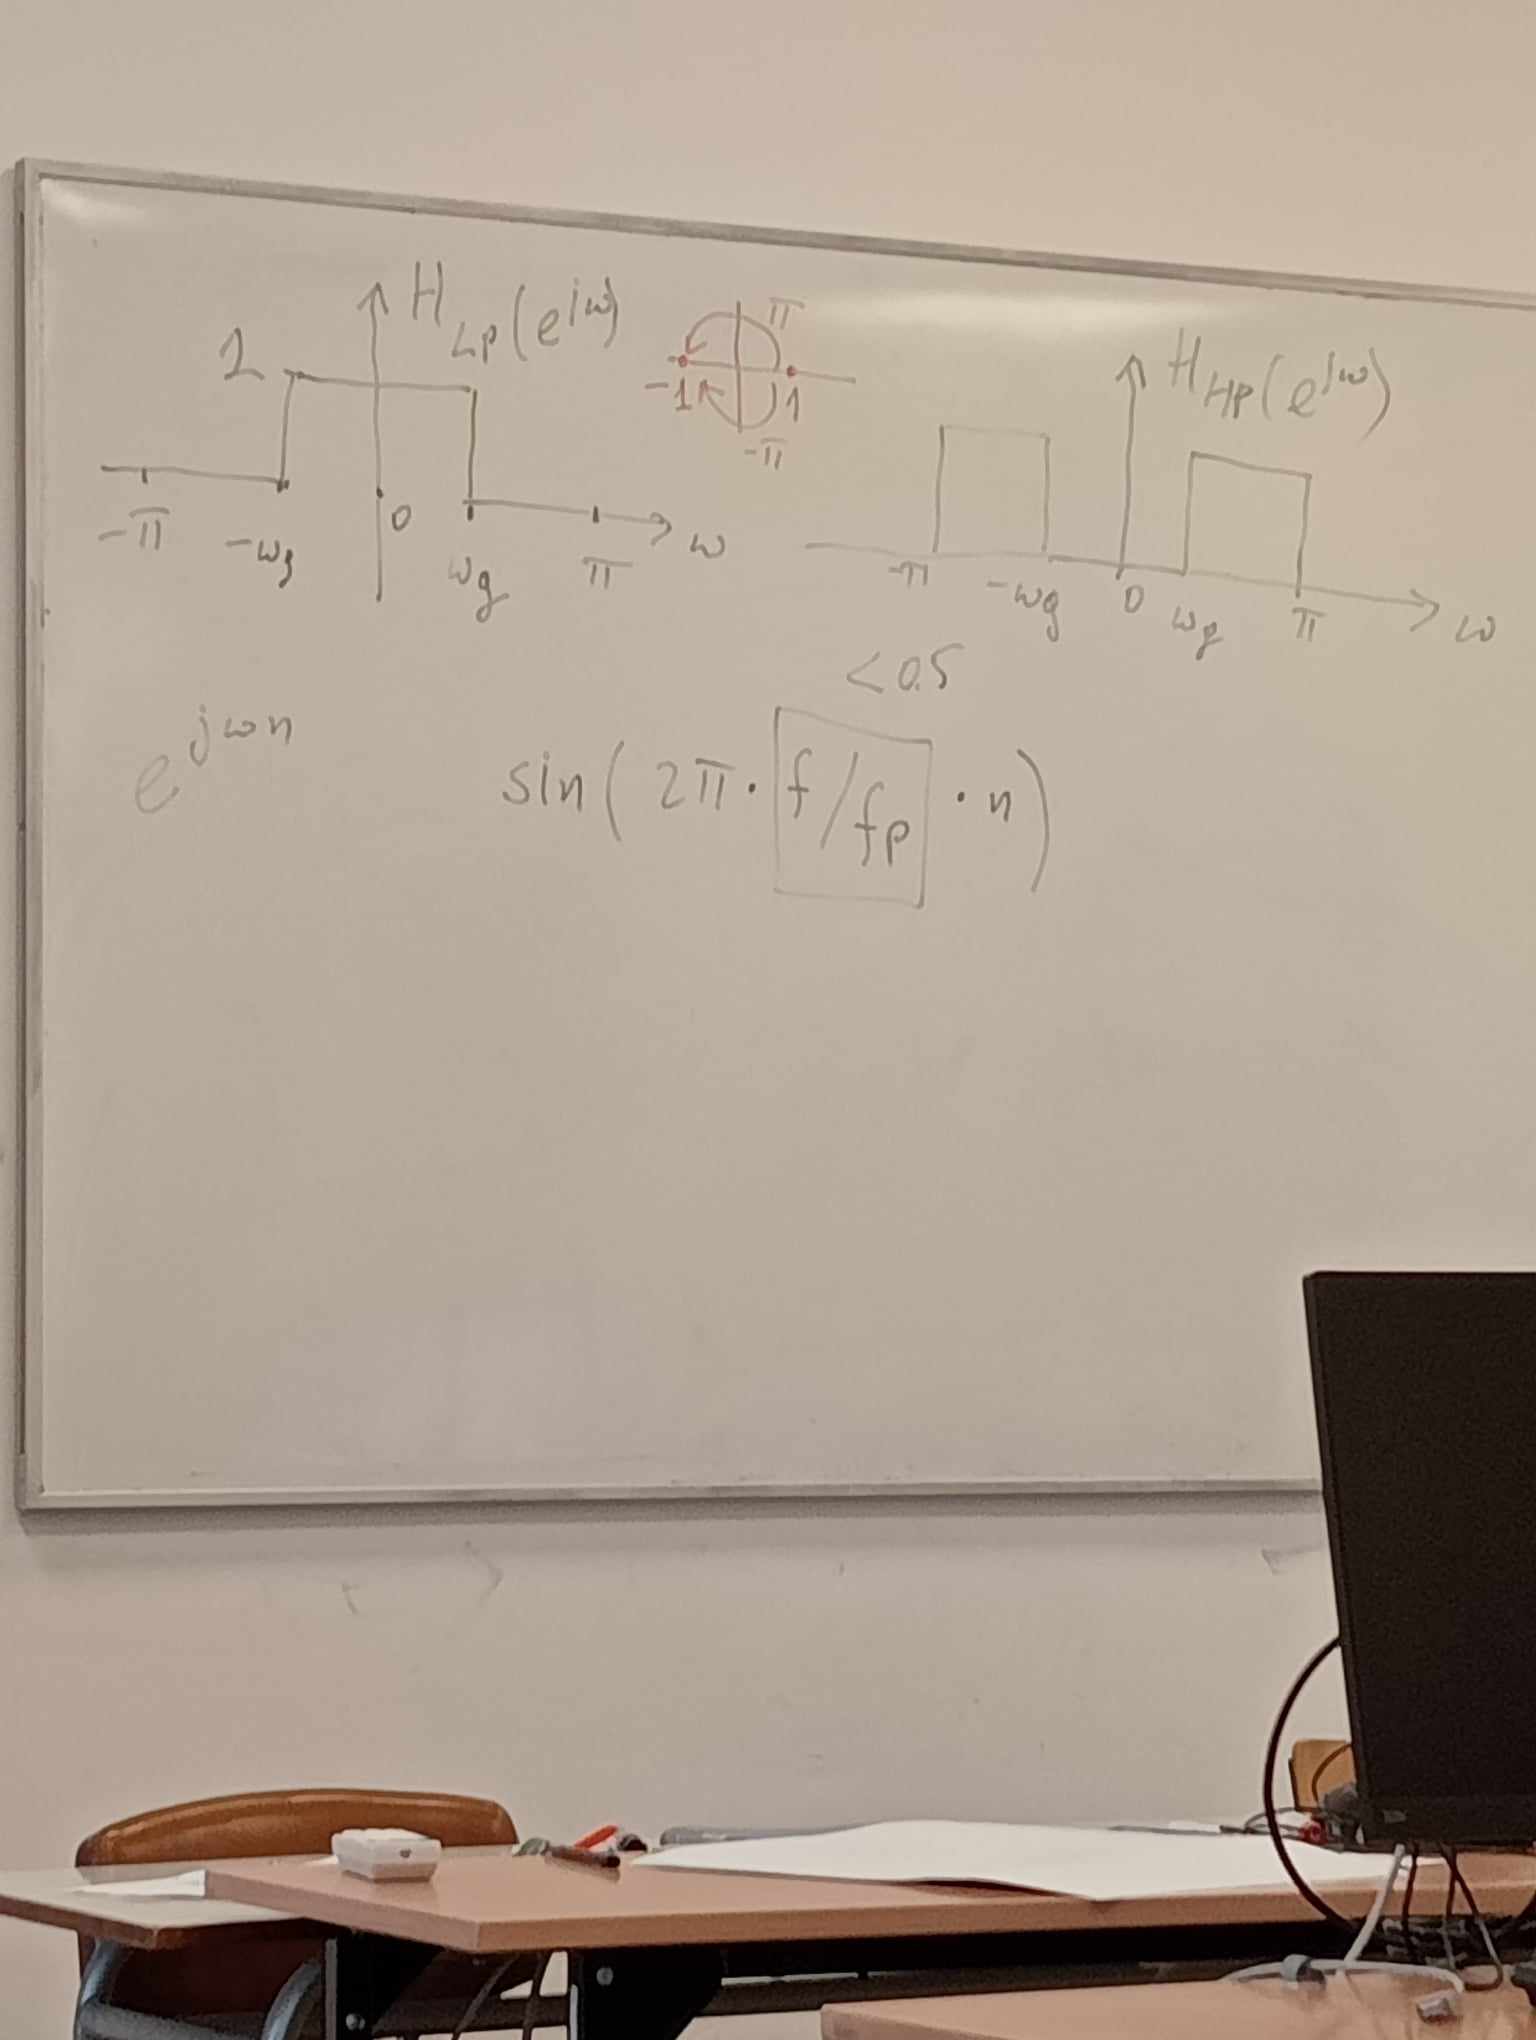 H_LP(e^jω)
1
-π -ωg 0 ωg π ω
π
-1 1
-π
H_HP(e^jω)
-π -ωg 0 ωg π ω
< 0.5
e^jωn
sin( 2π · f/fp · n )